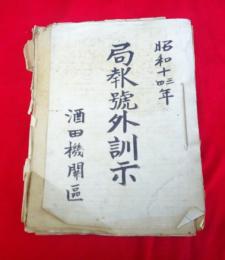 昭和十三年
局報號外訓示
酒田機關區